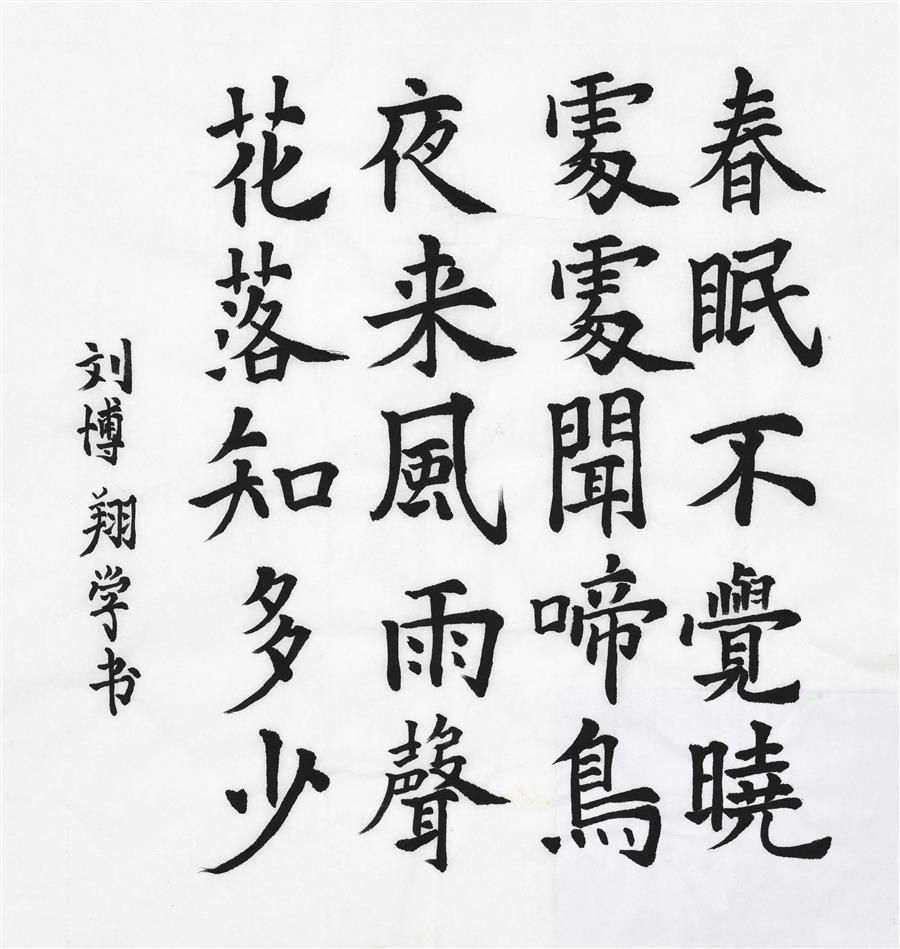 春眠不覺曉
處處聞啼鳥
夜来風雨聲
花落知多少
刘博翔学书